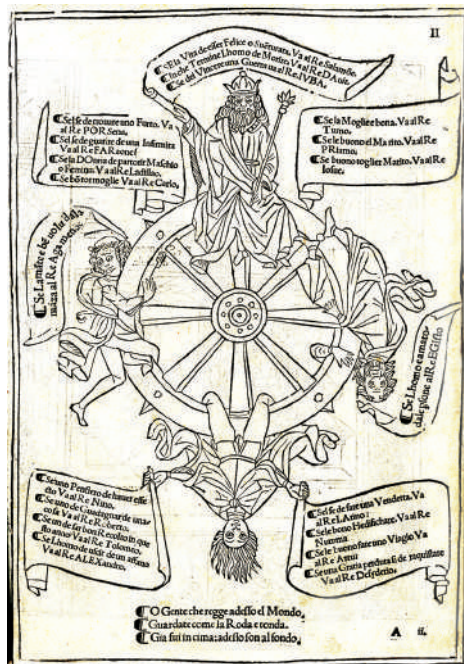 II
SE la Vita de esser Felice o Suēturata. Va al Re Salamōe.
In che Termine Lhomo de Morire. Va al Re DAuit.
Se dei Vincere una Guerra ua al Re IVBA.
Sel se de trouare uno Furto. Va
al Re PORSena.
Sel se de guarire de una Infirmita
Va al Re FARaone.
Se la DOnna de parturir Maschio
o Femina. Va al Re Ladislao.
Se bō tor moglie Va al Re Carlo.
Se la Moglie e bona. Va al Re
Turno.
Se le buono el Marito. Va al Re
PRIamo.
Se buono toglier Marito. Va al Re
Iosue.
Se Lamāte e bē uoluto dalla
al Re Agameno.
Se Lhomo e amato
al Re EGisto
Se uno Pensiero de hauer effe
cto Va al Re Nino.
Se uno de Guadagnar de una
cosa Va al Re Roberto.
Se un de far bon Recolto in que
sto anno Va al Re Tolomeo.
Se Lhomo de uscir de un affanno
Va al Re ALEXandro.
Sel se de fare una Vendetta. Va
al Re LAtino
Se le bono Hedificare. Va al Re
Numma
Se le buono fare uno Viagio Va
al Re Artu
Se una Gratia perduta se de raquistare
Va al Re Desiderio.
O Gente che regge adesso el Mondo.
Guardate come la Roda e tonda.
Gia fui in cima: adesso son al fondo.
A ii.